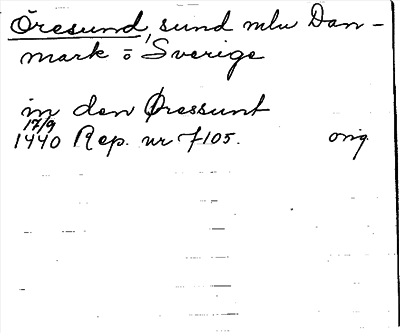 Öresund, sund mlu Dan-
mark o Sverige
in den Øressunt
17/9
1440 Rep. nr 7105. orig